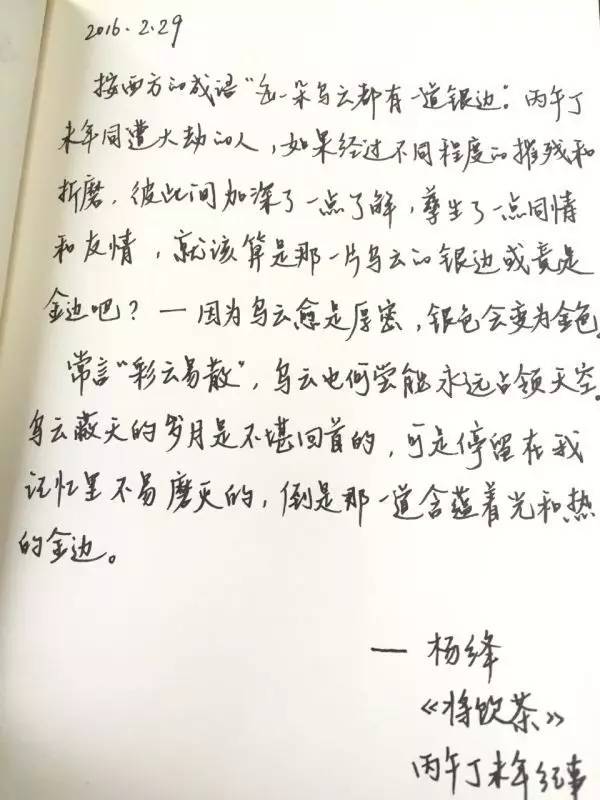 2016.2.29
按西方的成语“每一朵乌云都有一道银边”,丙午丁
未年同遭大劫的人,如果经过不同程度的摧残和
折磨,彼此间加深了一点了解,孳生了一点同情
和友情,就该算是那一片乌云的银边或竟是
金边吧?—因为乌云愈是厚密,银色会变为金色。
常言“彩云易散”,乌云也何尝能永远占领天空。
乌云蔽天的岁月是不堪回首的,可是停留在我
记忆里不易磨灭的,倒是那一道含蕴着光和热
的金边。
— 杨绛
《将饮茶》
丙午丁未年纪事